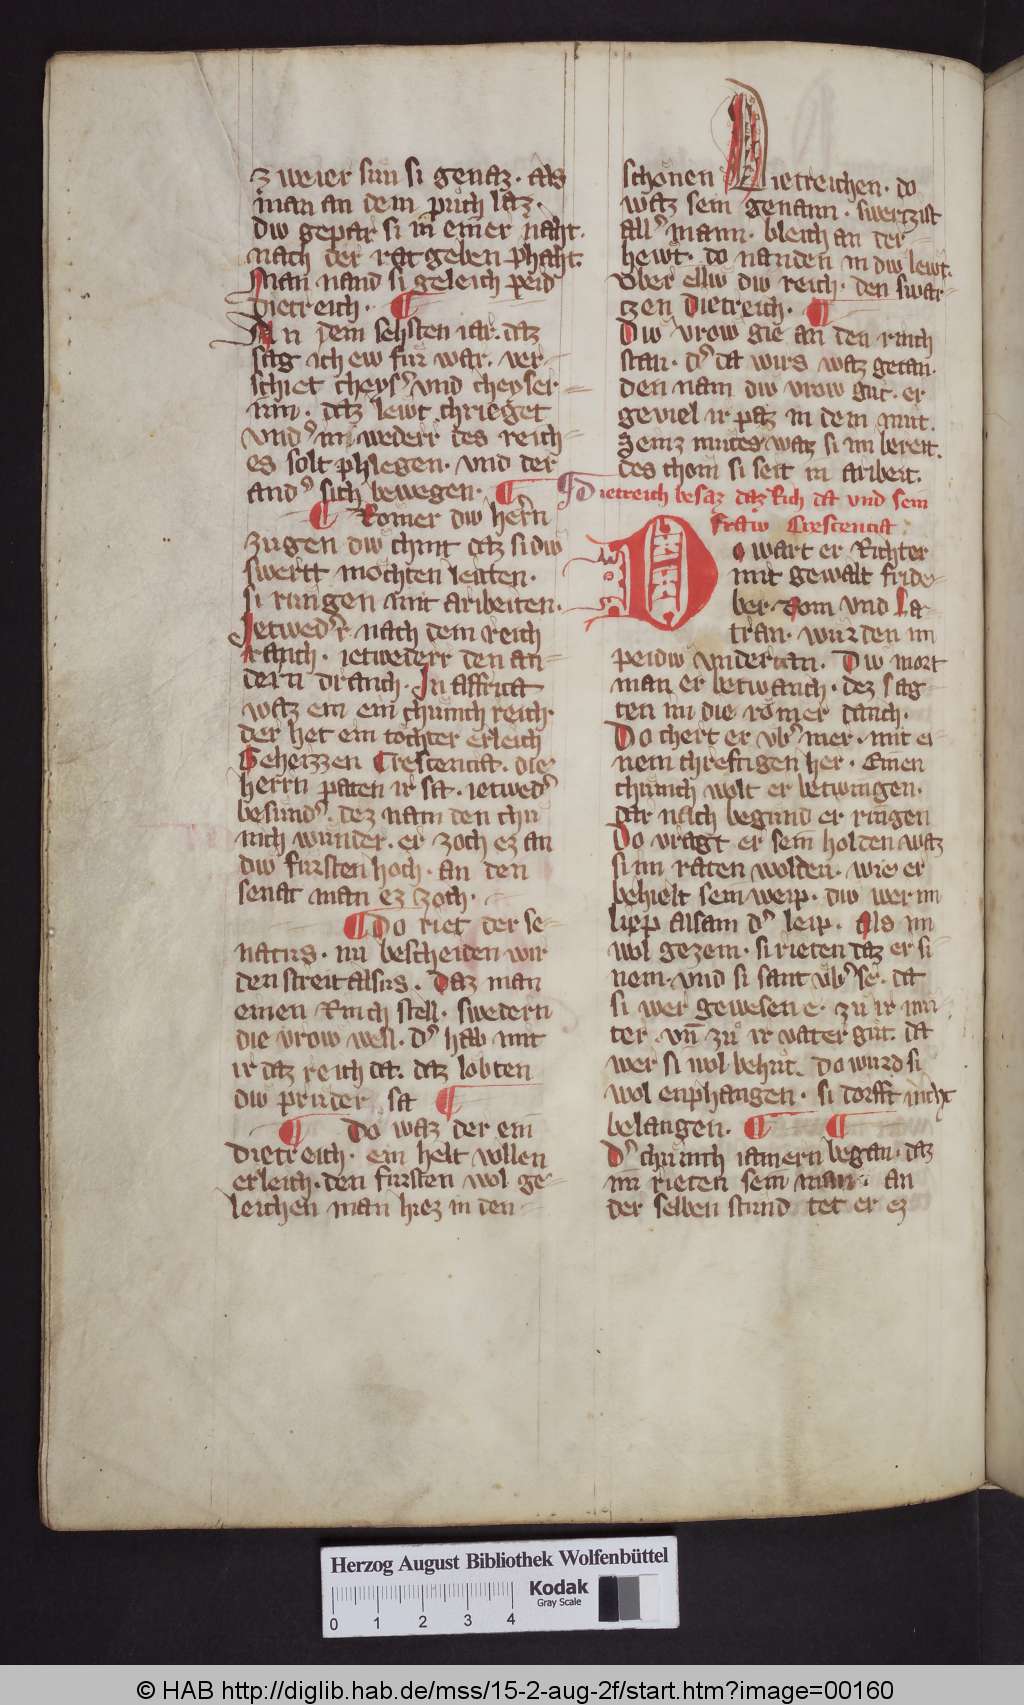 zweier sun si genaz · als
man an dem puch laz ·
diw gepar si in einer naht ·
nach der rat geben phaht ·
Man nand si geleich peid
dietreich ·
An dem sehsten iar · daz
sag ich ew fur war · ver
schiet cheysͬ vnd cheyser
inn · daz lewt chrieget
vndͬ in weder des reich
es solt phlegen · vnd der
andͬ sich bewegen ·
Romer diw herrn
zugen diw chint daz si diw
swertt mochten leitten ·
si rungen mit aribeiten ·
Ietwedͬr nach dem reich
ranch · ietwederr den an
dern dranch · In affrica
waz ein ein chunich reich ·
der het ein tochter erleich
Geheizzen Crescencia · die
herrn paten ir sa · ietwedͬ
besundͬ · dez nam den chu
nich wunder · er zoch ez an
diw fursten hoch · an den
senat man ez zoch ·
Do riet der se
natus · nu bescheiden wir
den streit alsus · Daz man
einen Rinch stell · swedern
die vrow well · dͬ hab mit
ir daz reich da · daz lobten
diw pruder sa
Do waz der ein
dietreich · ein helt vollen
erleich · den fursten wol ge
leichen man hiez in den
schonen Dietreichen · do
waz sein genann · swertzist
allͬ mann · bleich an der
hewt · do nanden in diw lewt ·
Vber ellw diw reich · den swar
czen dietreich ·
Diw vrow gie an den rinch
stan · dͬ da wirs waz getan ·
den nam diw vrow gut · er
geviel ir paz in dem mut ·
Seinz mutes waz si im bereit ·
des chom si seit in aribeit ·
Dietreich besaz daz Rich da vnd sein
fraw Crescencia
Do wart er Richter
mit gewalt fride
ber · Rom vnd La
tran · wurden im
peidiw vndertan · Diw mort
man er betwanch · dez sag
ten im die romer danch ·
Do chert er vbͬ mer · mit ei
nem chreftigen her · Einen
chunich wolt er betwingen ·
dar nach begund er ringen
Do vragt er sein holden waz
si im raten wolden · wie er
behielt sein weip · diw wer im
lipp alsam dͬ leip · als im
wol gezem · si rieten daz er si
nem · vnd si sant vbͬ se · da
si wer gewesen e · zu ir mu
ter · vn̄ zu ir vater gut · da
wer si wol behut · Do wurd si
wol enphangen · si dorfft nicht
belangen ·
Dͬ chunich iamern began · daz
im rieten sein man · an
der selben stund tet er ez
Herzog August Bibliothek Wolfenbüttel
Kodak
Gray Scale
0 1 2 3 4
© HAB http://diglib.hab.de/mss/15-2-aug-2f/start.htm?image=00160